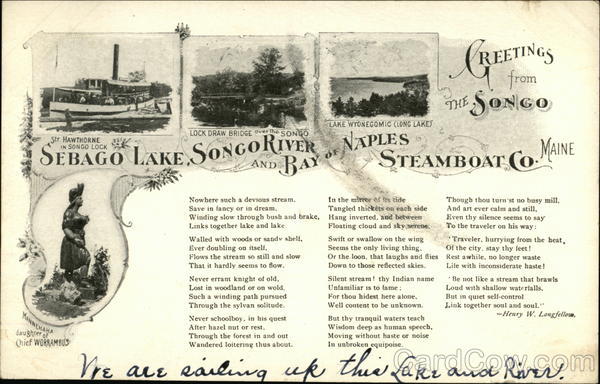 GREETINGS
from
THE SONGO
Str. HAWTHORNE
IN SONGO LOCK
LOCK DRAW BRIDGE over the SONGO
LAKE WYONEGOMIC (LONG LAKE)
SEBAGO LAKE, SONGO RIVER AND BAY OF NAPLES STEAMBOAT CO. MAINE
MINNEHAHA
daughter of
Chief WORRAMBUS
Nowhere such a devious stream,
Save in fancy or in dream,
Winding slow through bush and brake,
Links together lake and lake.
Walled with woods or sandy shelf,
Ever doubling on itself,
Flows the stream so still and slow
That it hardly seems to flow.
Never errant knight of old,
Lost in woodland or on wold,
Such a winding path pursued
Through the sylvan solitude.
Never schoolboy, in his quest
After hazel nut or rest,
Through the forest in and out
Wandered loitering thus about.
In the mirror of its tide
Tangled thickets on each side
Hang inverted, and between
Floating cloud and sky serene.
Swift or swallow on the wing
Seems the only living thing,
Or the loon, that laughs and flies
Down to those reflected skies.
Silent stream! thy Indian name
Unfamiliar is to fame;
For thou hidest here alone,
Well content to be unknown.
But thy tranquil waters teach
Wisdom deep as human speech,
Moving without haste or noise
In unbroken equipoise.
Though thou turn'st no busy mill,
And art ever calm and still,
Even thy silence seems to say
To the traveler on his way:
'Traveler, hurrying from the heat,
Of the city, stay thy feet!
Rest awhile, no longer waste
Life with inconsiderate haste!
'Be not like a stream that brawls
Loud with shallow waterfalls,
But in quiet self-control
Link together soul and soul."
—Henry W. Longfellow.
We are sailing up this Lake and River
CardCow.com